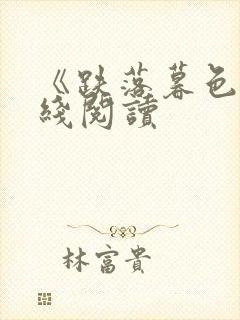 《跌落暮色
綫閱讀
林富貴